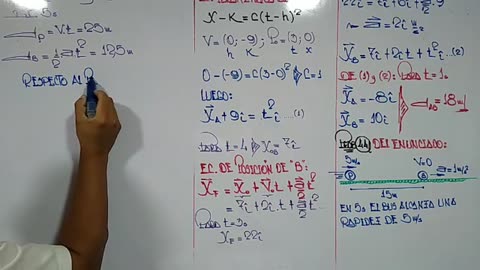 d_P = Vt = 25m
d_B = 1/2 at² = 12,5m
RESPECTO AL
X - K = C(t - h)²
V = (0; -9) ; P = (3; 0)
h K t x
0 - (-9) = C(3-0)² C = 1
LUEGO:
X_A + 9i = t²i ...(1)
PARA t = 4 X_OB = 7i
EC. DE POSICIÓN DE "B":
X_F = X_0 + V_0t + a/2 t²
= 7i + 2i.t + a/2 t²
PARA t = 3s
X_F = 22i
a = 2i
X_B = 7i + 2it + t²i
DE (1) y (2): PARA t = 1s
X_A = -8i
X_B = 10i
d_AB = 18m
PROB 44 DEL ENUNCIADO:
5m/s V=0 a = 1m/s²
P B
15m
EN 5s EL BUS ALCANZA UNA
RAPIDEZ DE 5m/s